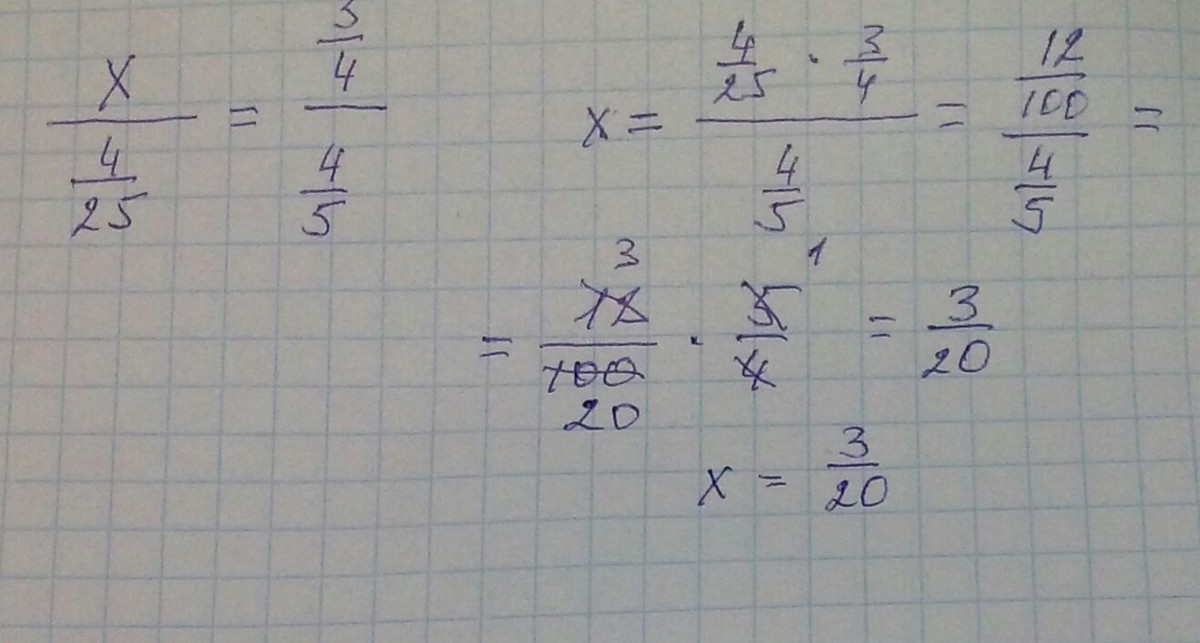 x/(4/25) = (3/4)/(4/5)
x = (4/25 · 3/4)/(4/5) = (12/100)/(4/5) =
3 1
= 12/100 · 5/4 = 3/20
20
x = 3/20